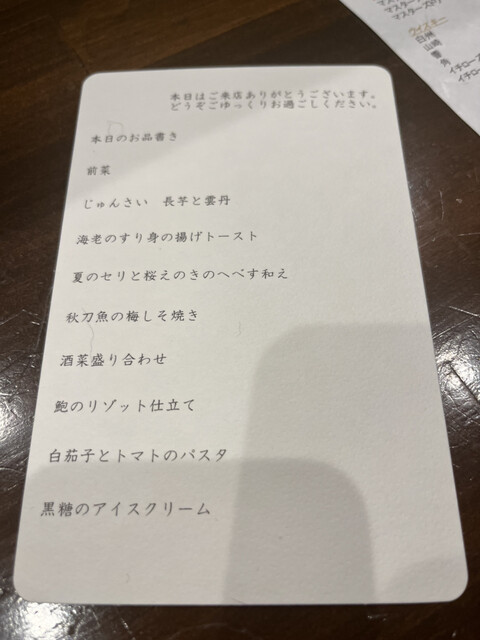 本日はご来店ありがとうございます。
どうぞごゆっくりお過ごしください。
本日のお品書き
前菜
じゅんさい　長芋と雲丹
海老のすり身の揚げトースト
夏のセリと桜えのきのへべす和え
秋刀魚の梅しそ焼き
酒菜盛り合わせ
鮑のリゾット仕立て
白茄子とトマトのパスタ
黒糖のアイスクリーム
マスターズ
マスターズ
ウイスキー
白州
山崎
響
イチローズ
イチロー